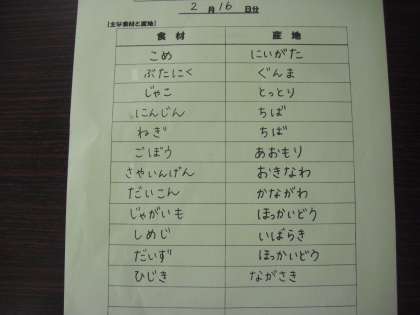 2月16日分
[主な食材と産地]
食材 産地
こめ にいがた
ぶたにく ぐんま
じゃこ とっとり
にんじん ちば
ねぎ ちば
ごぼう あおもり
さやいんげん おきなわ
だいこん かながわ
じゃがいも ほっかいどう
しめじ いばらき
だいず ほっかいどう
ひじき ながさき